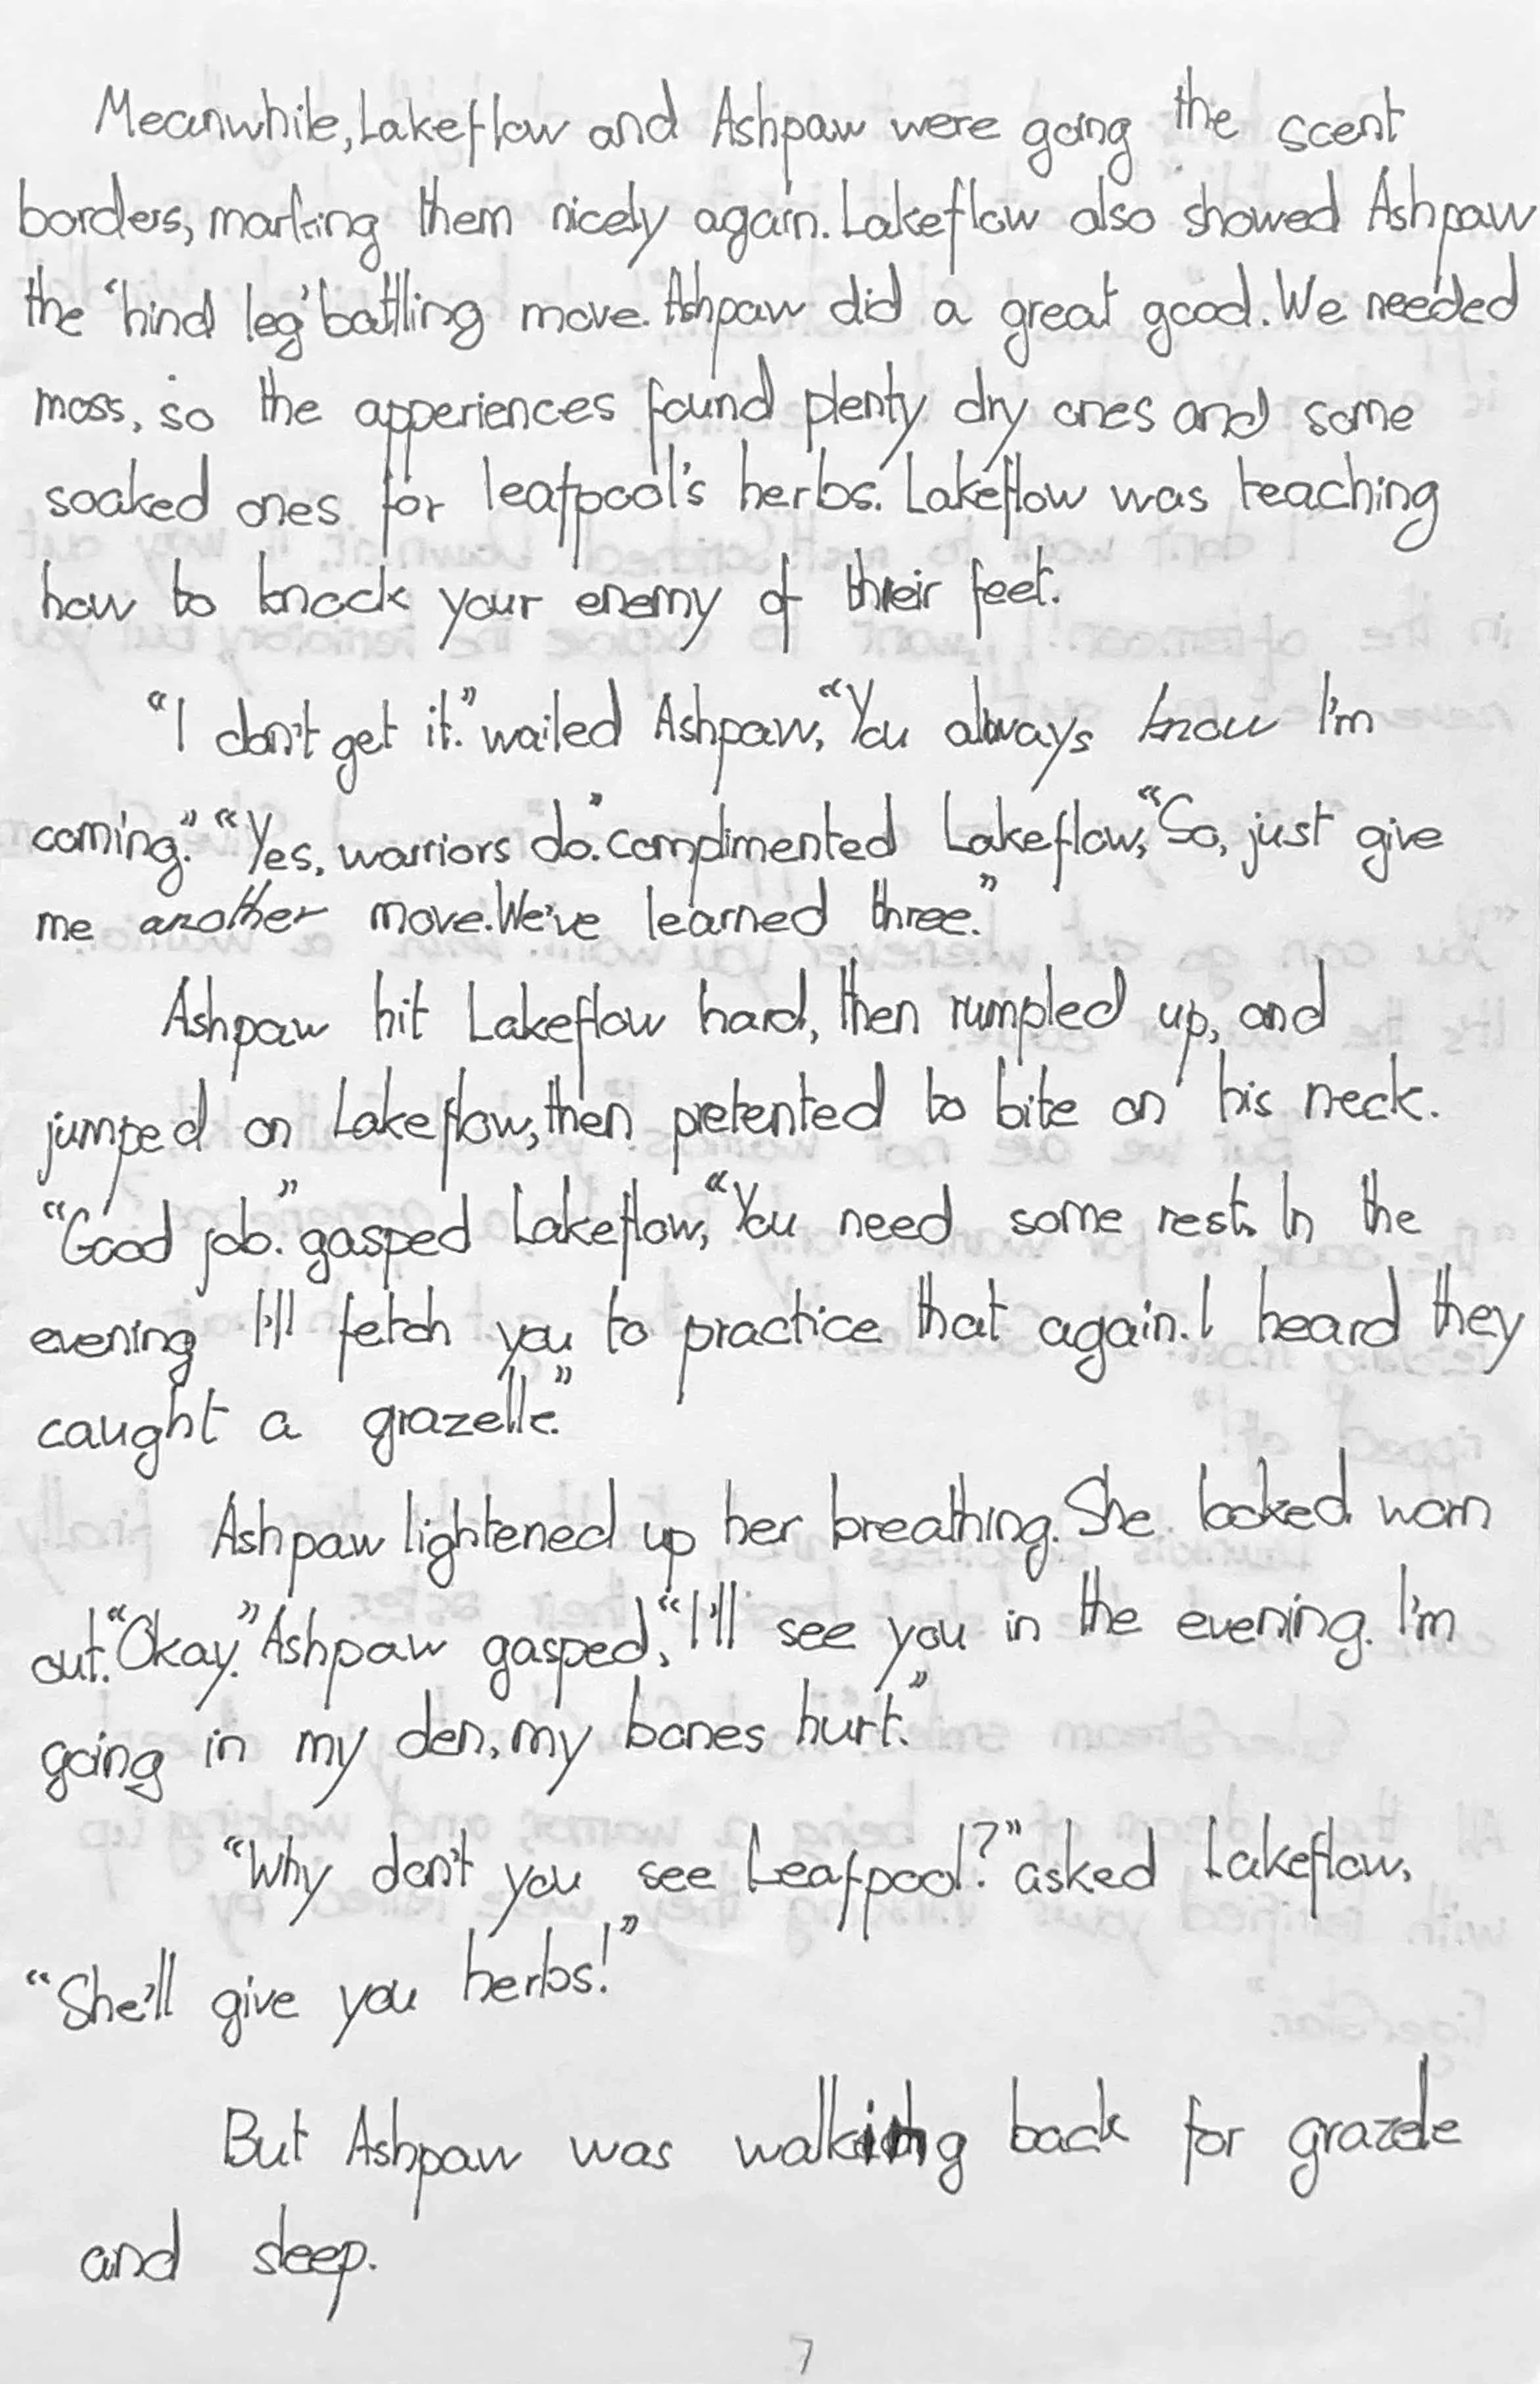 Meanwhile, Lakeflow and Ashpaw were going the scent
borders, marking them nicely again. Lakeflow also showed Ashpaw
the 'hind leg' battling move. Ashpaw did a great good. We needed
moss, so the apperiences found plenty dry ones and some
soaked ones for leafpool's herbs. Lakeflow was teaching
how to knock your enemy of their feet.
"I don't get it." wailed Ashpaw, "You always know I'm
coming." "Yes, warriors do." complimented Lakeflow, "So, just give
me another move. We've learned three."
Ashpaw hit Lakeflow hard, then rumpled up, and
jumped on Lakeflow, then pretented to bite on his neck.
"Good job." gasped Lakeflow, "You need some rest. In the
evening I'll fetch you to practice that again. I heard they
caught a grazelle."
Ashpaw lightened up her breathing. She looked worn
out. "Okay." Ashpaw gasped, "I'll see you in the evening. I'm
going in my den, my bones hurt."
"Why don't you see Leafpool?" asked Lakeflow,
"She'll give you herbs!"
But Ashpaw was walking back for grazele
and sleep.
7